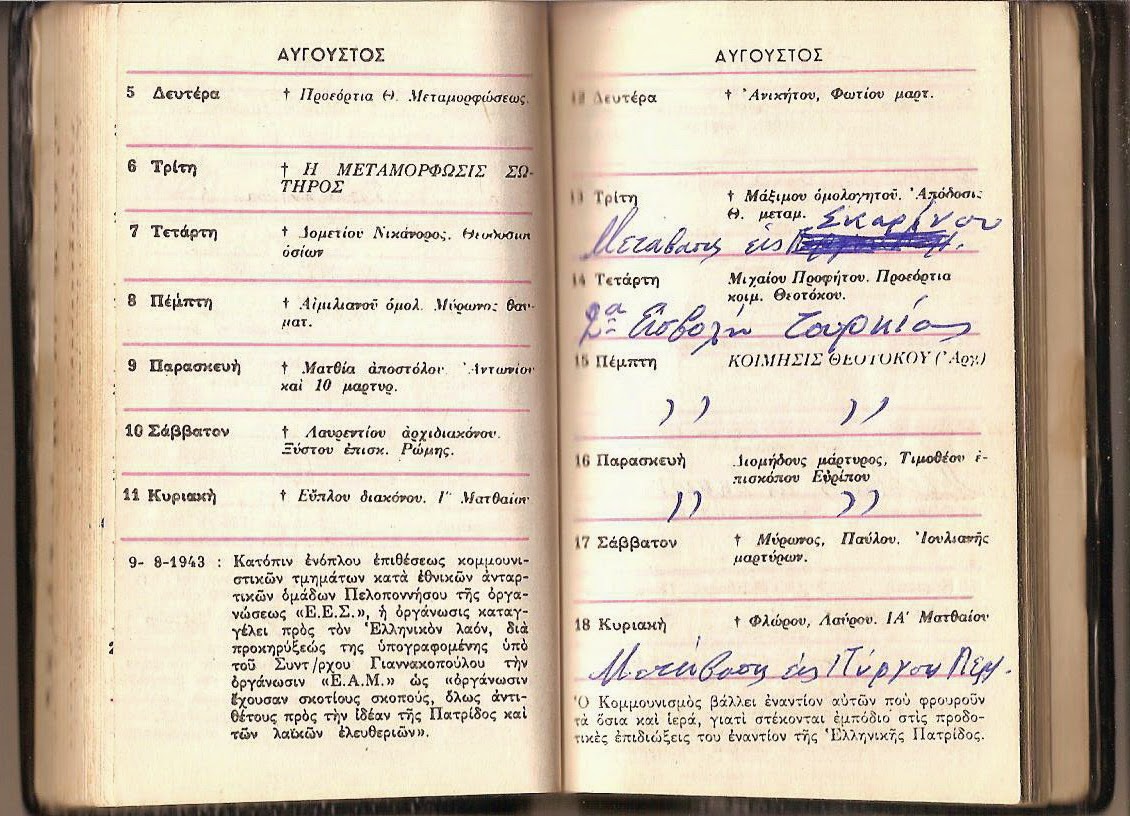 ΑΥΓΟΥΣΤΟΣ
5 Δευτέρα † Προεόρτια Θ. Μεταμορφώσεως.
6 Τρίτη † Η ΜΕΤΑΜΟΡΦΩΣΙΣ ΣΩ-
ΤΗΡΟΣ
7 Τετάρτη † Δομετίου Νικάνορος. Θεοδοσίου
ὁσίων
8 Πέμπτη † Αἰμιλιανοῦ ὁμολ. Μύρωνος θαυ-
ματ.
9 Παρασκευή † Ματθία ἀποστόλου. Ἀντωνίου
καὶ 10 μαρτυρ.
10 Σάββατον † Λαυρεντίου ἀρχιδιακόνου.
Ξύστου ἐπισκ. Ρώμης.
11 Κυριακή † Εὔπλου διακόνου. Ι΄ Ματθαίου
9- 8-1943 : Κατόπιν ἐνόπλου ἐπιθέσεως κομμουνι-
στικῶν τμημάτων κατὰ ἐθνικῶν ἀνταρ-
τικῶν ὁμάδων Πελοποννήσου τῆς ὀργα-
νώσεως «Ε.Ε.Σ.», ἡ ὀργάνωσις καταγ-
γέλει πρὸς τὸν Ἑλληνικὸν λαόν, διὰ
προκηρύξεώς της ὑπογραφομένης ὑπὸ
τοῦ Συντ/ρχου Γιαννακοπούλου τὴν
ὀργάνωσιν «Ε.Α.Μ.» ὡς «ὀργάνωσιν
ἔχουσαν σκοτίους σκοπούς, ὅλως ἀντι-
θέτους πρὸς τὴν ἰδέαν τῆς Πατρίδος καὶ
τῶν λαϊκῶν ἐλευθεριῶν».
ΑΥΓΟΥΣΤΟΣ
12 Δευτέρα † Ἀνικήτου, Φωτίου μαρτ.
13 Τρίτη † Μάξιμου ὁμολογητοῦ. Ἀπόδοσις
Θ. μεταμ.
Σκαρίνου
Μετάβασις εἰς
14 Τετάρτη Μιχαίου Προφήτου. Προεόρτια
κοιμ. Θεοτόκου.
2α Εἰσβολή Τουρκίας
15 Πέμπτη ΚΟΙΜΗΣΙΣ ΘΕΟΤΟΚΟΥ (Ἀργ.)
,, ,,
16 Παρασκευή Διομήδους μάρτυρος, Τιμοθέου ἐ-
πισκόπου Εὐρίπου
,, ,,
17 Σάββατον † Μύρωνος, Παύλου. Ἰουλιανῆς
μαρτύρων.
18 Κυριακή † Φλώρου, Λαύρου. ΙΑ΄ Ματθαίου
Μετάβασις εἰς Πύργον Λεμ.
Ὁ Κομμουνισμὸς βάλλει ἐναντίον αὐτῶν ποὺ φρουροῦν
τὰ ὅσια καὶ ἱερά, γιατὶ στέκονται ἐμπόδιο στὶς προδο-
τικὲς ἐπιδιώξεις του ἐναντίον τῆς Ἑλληνικῆς Πατρίδος.